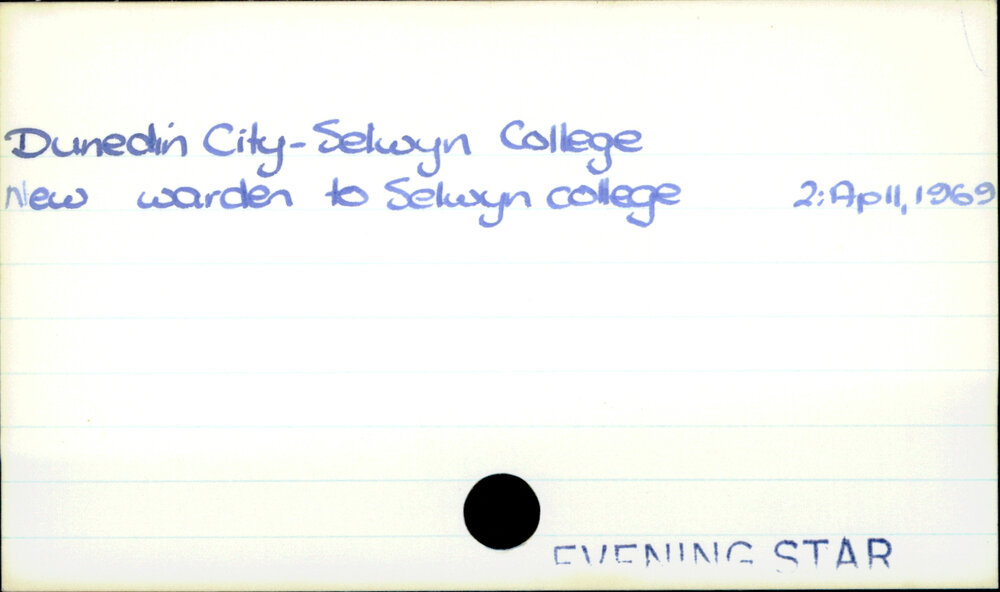 Dunedin City-Selwyn College
New warden to Selwyn college 2:Apll,1969
EVENING STAR